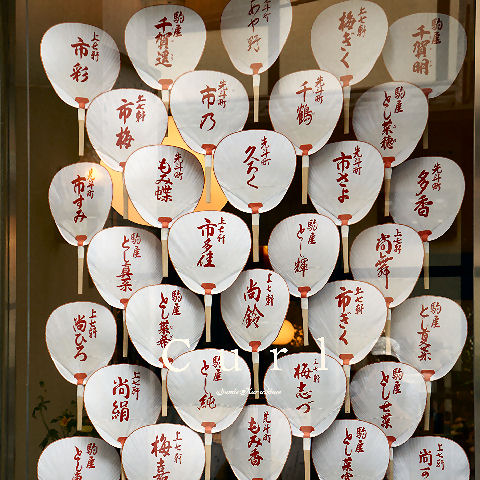 上七軒 市彩
駒屋 千賀遥
先斗町 あや野
上七軒 梅ぎく
駒屋 千賀明
上七軒 市梅
先斗町 市乃
先斗町 千鶴
駒屋 とし菜穂
先斗町 市すみ
先斗町 もみ蝶
先斗町 久ろく
先斗町 市さよ
先斗町 多香
駒屋 とし真菜
上七軒 市多佳
駒屋 とし輝
上七軒 尚舞
上七軒 尚ひろ
駒屋 とし菜
上七軒 尚鈴
上七軒 市ぎく
駒屋 とし夏菜
Curl
上七軒 尚絹
駒屋 とし純
上七軒 梅志づ
駒屋 とし世菜
駒屋
上七軒 梅嘉
先斗町 もみ香
駒屋 とし菜
上七軒 尚